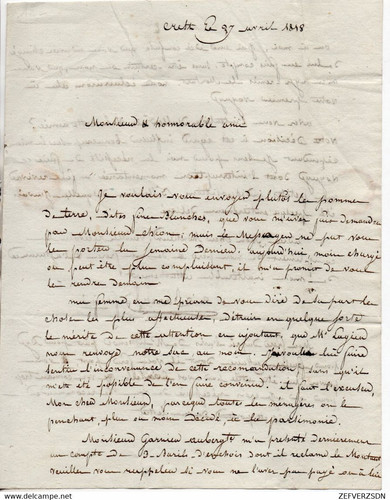 Crest le 27 avril 1818
Monsieur & honnorable ami
Je voulais vous envoyer plutôt les pommes
de terre, dites fine Blanches, que vous m'aviez fait demander
par Monsieur chion, mais le Messager ne put vous
les porter la semaine dernière. aujourd'hui moin chargé
ou peut être plus complaisant, il m'a promis de vous
les rendre demain.
ma femme en me priant de vous dire de sa part les
choses les plus affectueuses détruit en quelque sorte
le mérite de cette attention en ajoutant que Mr
nous renvoye notre sac au moins. Je voulus lui faire
sentir l'inconvenance de cette recomandation sans qu'il
m'ait été possible de l'en faire convenir; il faut l'excuser,
Mon cher Monsieur, parceque toutes les ménagères ont le
penchant plus ou moins décidé, de la parsimonie.
Monsieur Garnier auberg^te m'a presenté dernierement
un compte de B. Barils dont il reclame le Montant
veuillez vous rappeller si vous ne l'avez pas payé ou à lui
https://www.delcampe.net
ZEFVERZSDN